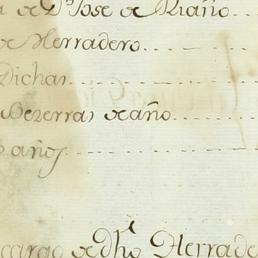 de Dn. Jose de Riaño
de Herradero
Dichas
Bezerras de año
años
cargo de dho. Herrade